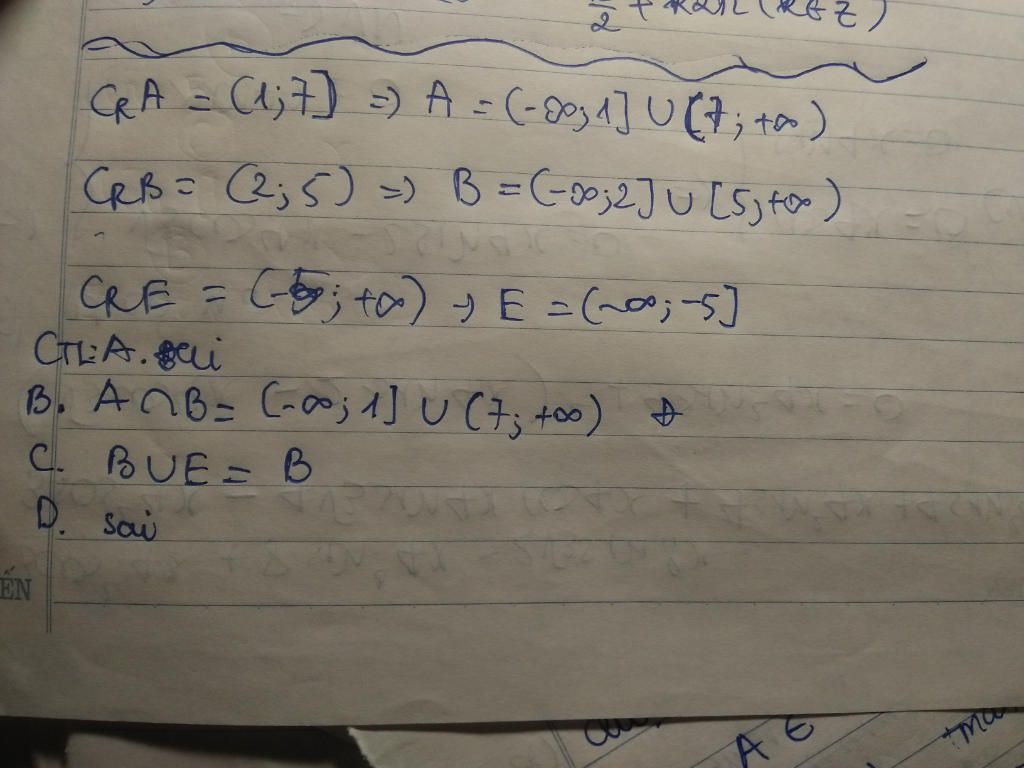 π/2 + k2π (k ∈ Z)
CRA = (1; 7] => A = (-∞; 1] ∪ (7; +∞)
CRB = (2; 5) => B = (-∞; 2] ∪ [5; +∞)
CRE = (-5; +∞) → E = (-∞; -5]
CTL: A. sai
B. A ∩ B = (-∞; 1] ∪ (7; +∞)
C. B ∪ E = B
D. sai
ẾN
A ∈